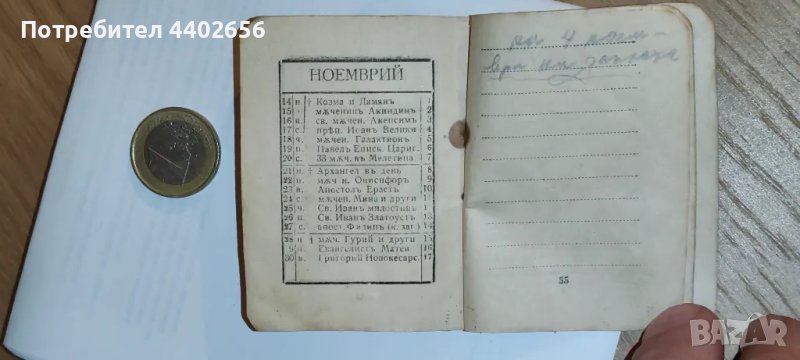 Потребител 4402656
НОЕМВРИЙ
14 н. † Козма и Дамянъ 1
15 п. мѫченикъ Акиндин 2
16 в. св. мѫчен. Акепсим. 3
17 с. прѣп. Иоан Велики 4
18 ч. мѫчен. Галактион 5
19 п. Павел Еписк. Цариг. 6
20 с. 33 мѫч. въ Мелетина 7
21 н. † Архангел въ день 8
22 п. мѫч и. Онисифор. 9
23 в. Апостол Ераст 10
24 с. мѫчен. Мина и други
25 ч. Св. Иван милостив
26 п. Св. Иван Златоуст 13
27 с. апост. Филип (к. заг.) 14
28 н † мѫч. Гурий и други 15
п. Евангелист Матеи
30 в. Григорий Неокесарс. 17
на 4 ноем-
ври
55
BAZAR